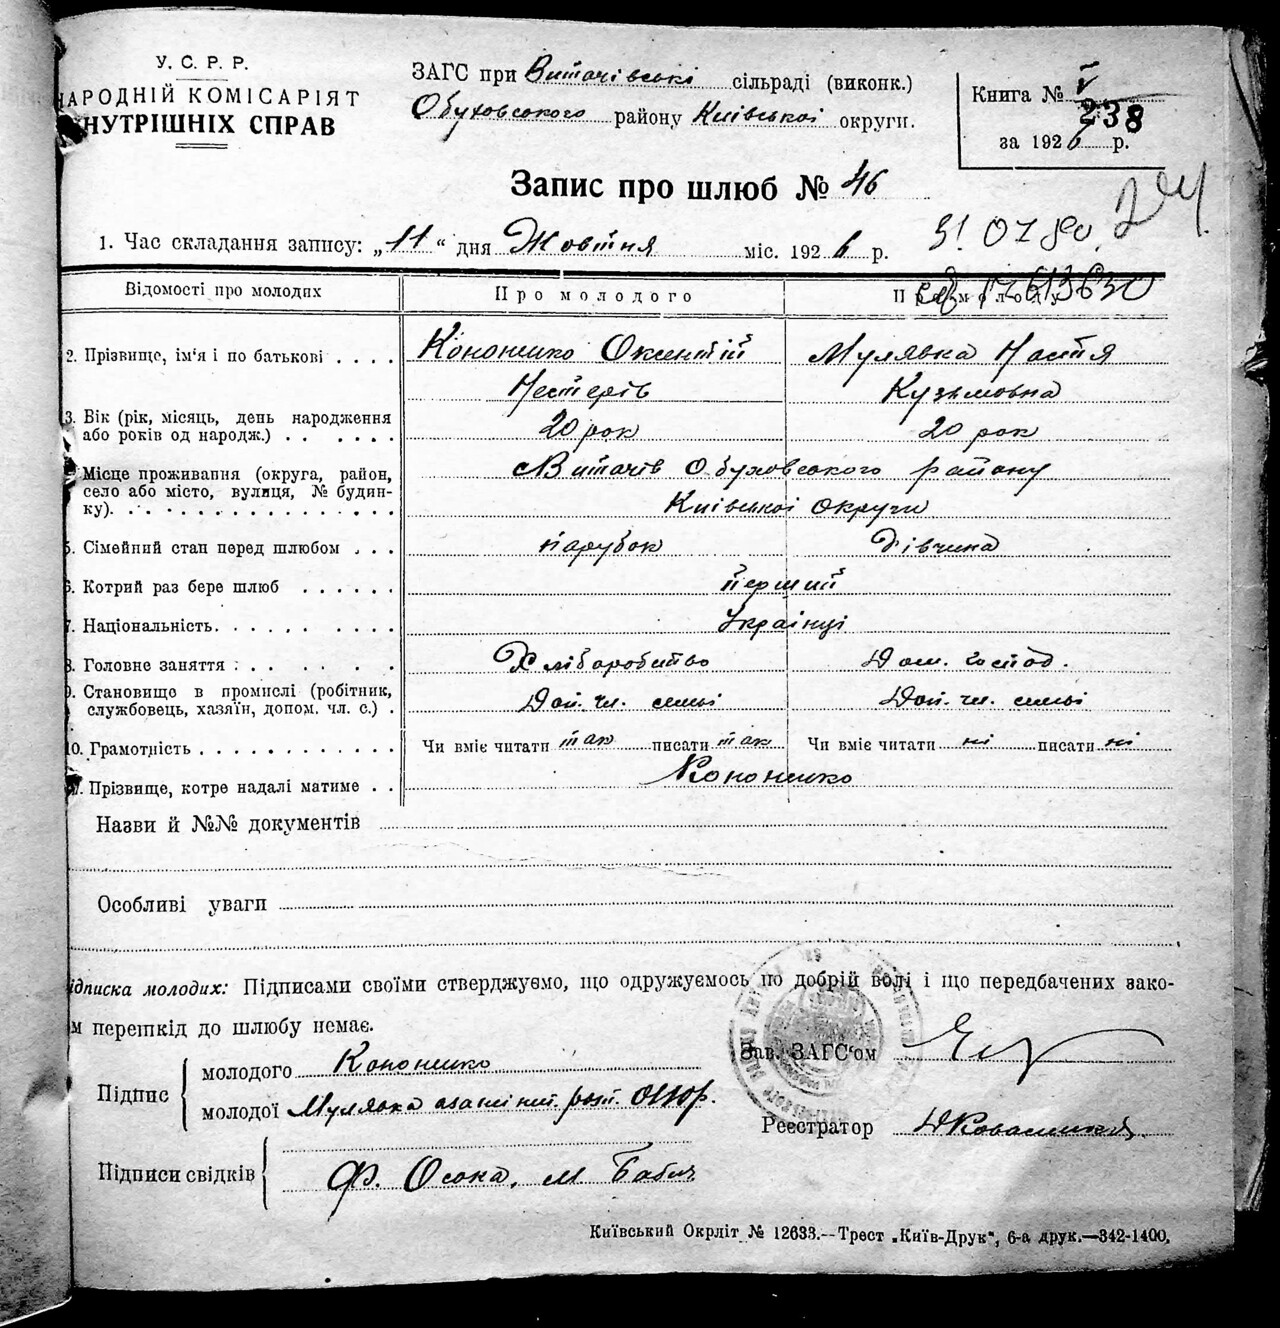 У. С. Р. Р.
НАРОДНІЙ КОМІСАРІЯТ
ВНУТРІШНІХ СПРАВ
ЗАГС при Витачівські сільраді (виконк.)
Обуховського району Київської округи.
Книга № V
238
за 1926 р.
Запис про шлюб № 46
24
1. Час складання запису: „11“ дня Жовтня міс. 1926 р.
31.07.80
Відомості про молодих
Про молодого
Про молоду
2. Прізвище, ім'я і по батькові . . . .
Кононенко Оксентій
Мулявка Настя
Нестерів
Кузьмовна
3. Вік (рік, місяць, день народження
або років од народж.) . . . . . . .
20 рок
20 рок
Місце проживання (округа, район,
село або місто, вулиця, № будин-
ку). . . . . . . . . . . . . . . .
Витачів Обуховського району
Київської округи
5. Сімейний стан перед шлюбом . . .
парубок
дівчина
6. Котрий раз бере шлюб . . . . . .
перший
7. Національність. . . . . . . . . .
Українці
8. Головне заняття . . . . . . . .
Хліборобство
Дом. господ.
9. Становище в промислі (робітник,
службовець, хазяїн, допом. чл. с.) .
Доп. чл. семьі
Доп. чл. семьі
10. Грамотність . . . . . . . . . . . .
Чи вміє читати так писати так
Чи вміє читати ні писати ні
Прізвище, котре надалі матиме . .
Кононенко
Назви й №№ документів
Особливі уваги
Підписка молодих: Підписами своїми стверджуємо, що одружуємось по добрій волі і що передбачених зако-
ном перешкід до шлюбу немає.
Зав. ЗАГС'ом
Підпис
молодого Кононенко
молодої Мулявка
Реєстратор
Підписи свідків
Ф. Осока, М
Київський Окрліт № 12633.—Трест „Київ-Друк“, 6-а друк.—342-1400.